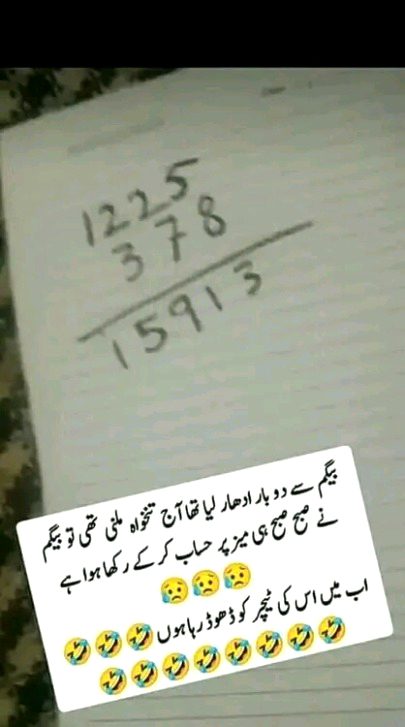 1225
378
15913
بیگم سے دو بار ادھار لیا تھا آج تنخواہ ملنی تھی تو بیگم
نے صبح صبح ہی میز پر حساب کر کے رکھا ہوا ہے
😥😥😥
اب میں اس کی ٹیچر کو ڈھوڈ رہا ہوں 🤣🤣🤣
🤣🤣🤣🤣🤣🤣🤣🤣